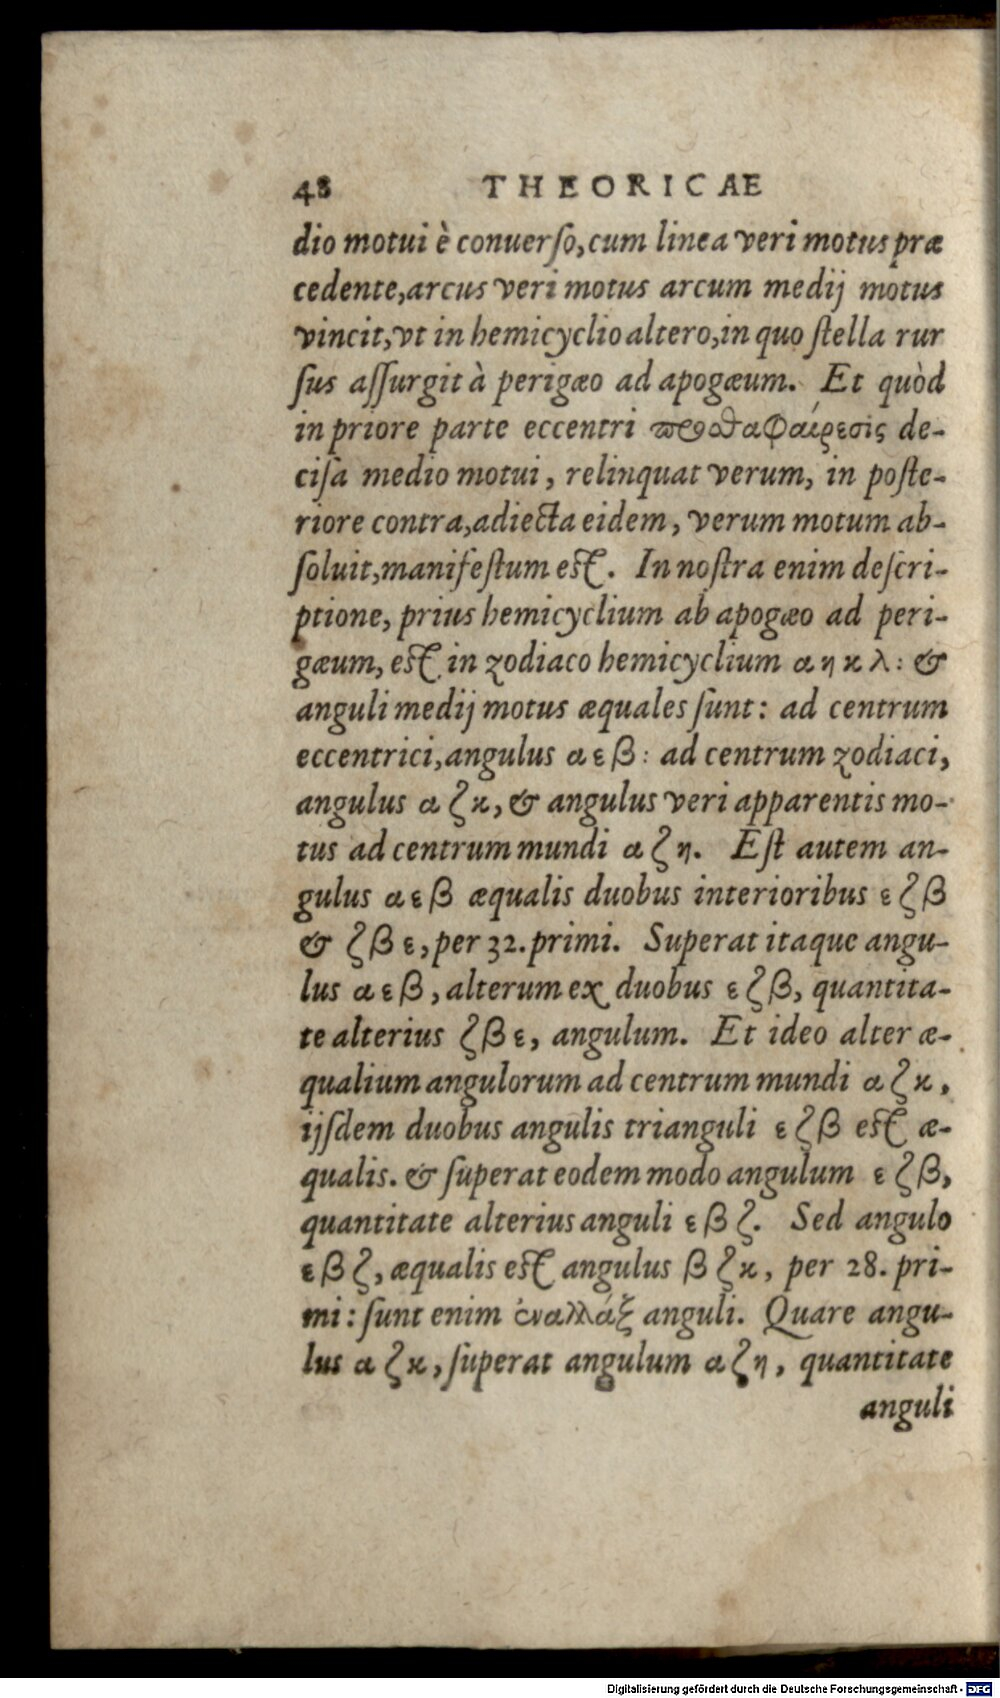 48 THEORICAE
dio motui è conuerſo, cum linea veri motus præ
cedente, arcus veri motus arcum medij motus
vincit, vt in hemicyclio altero, in quo ſtella rur
ſus aſſurgit à perigæo ad apogæum. Et quòd
in priore parte eccentri προσθαφαίρεσις de-
ciſa medio motui, relinquat verum, in poſte-
riore contra, adiecta eidem, verum motum ab-
ſoluit, manifeſtum eſt. In noſtra enim deſcri-
ptione, prius hemicyclium ab apogæo ad peri-
gæum, eſt in zodiaco hemicyclium α η κ λ: &
anguli medij motus æquales ſunt: ad centrum
eccentrici, angulus α ε β: ad centrum zodiaci,
angulus α ζ κ, & angulus veri apparentis mo-
tus ad centrum mundi α ζ η. Eſt autem an-
gulus α ε β æqualis duobus interioribus ε ζ β
& ζ β ε, per 32. primi. Superat itaque angu-
lus α ε β, alterum ex duobus ε ζ β, quantita-
te alterius ζ β ε, angulum. Et ideo alter æ-
qualium angulorum ad centrum mundi α ζ κ,
ijſdem duobus angulis trianguli ε ζ β eſt æ-
qualis. & ſuperat eodem modo angulum ε ζ β,
quantitate alterius anguli ε β ζ. Sed angulo
ε β ζ, æqualis eſt angulus β ζ κ, per 28. pri-
mi: ſunt enim ἐναλλάξ anguli. Quare angu-
lus α ζ κ, ſuperat angulum α ζ η, quantitate
anguli
Digitalisierung gefördert durch die Deutsche Forschungsgemeinschaft - DFG